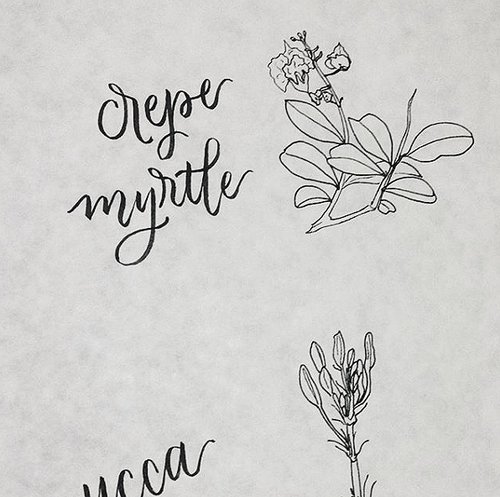 crepe
myrtle
ucca